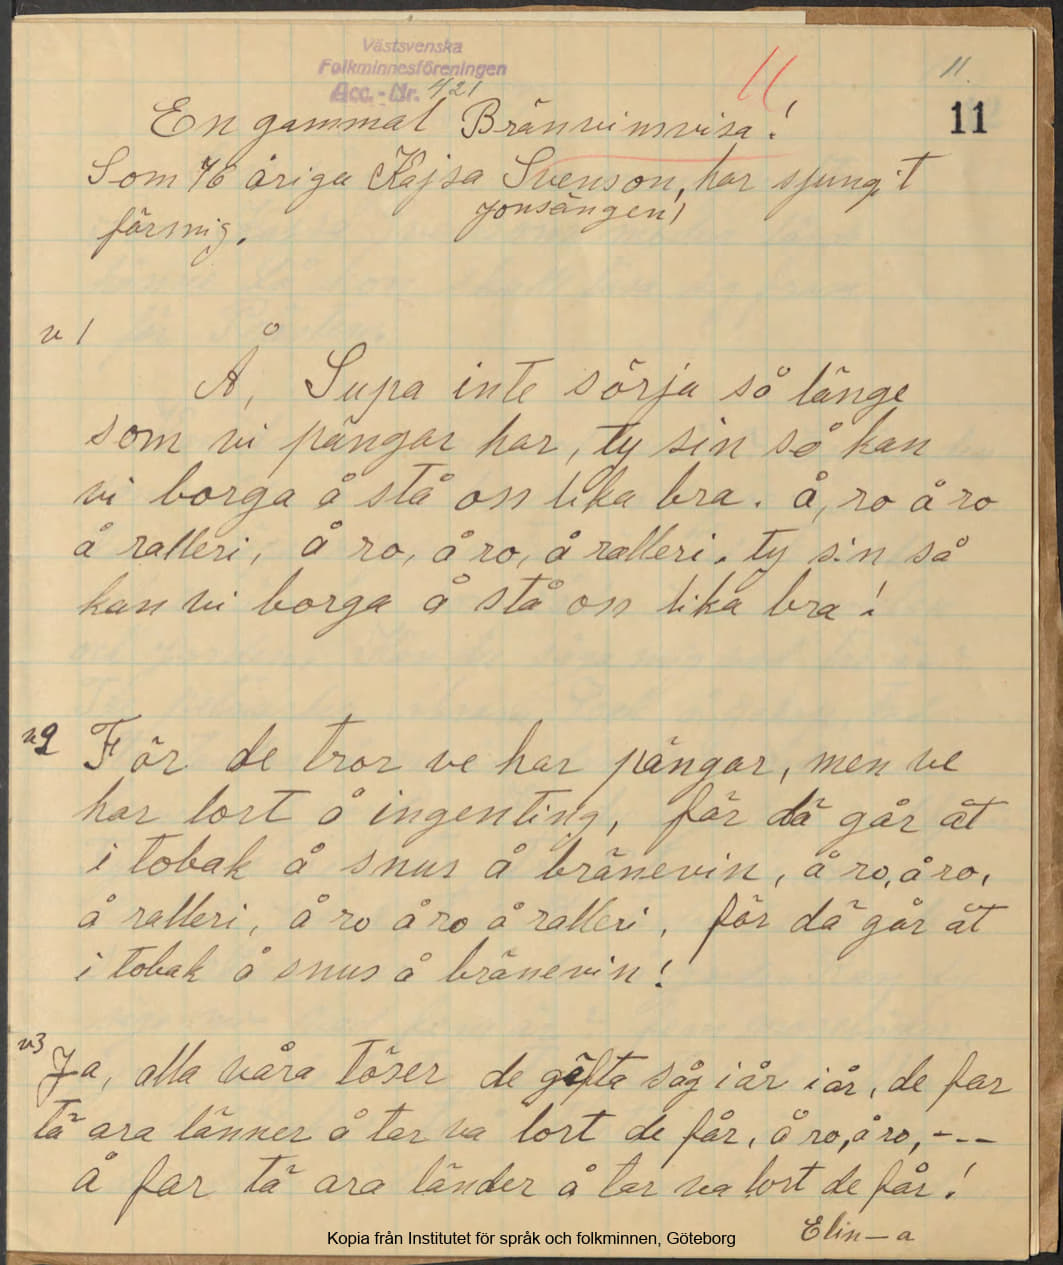 Västsvenska
Folkminnesföreningen
Acc.-Nr. 421
11
11
11
En gammal Bränvinsvisa!
Som 76 åriga Kajsa Svenson, har sjungit
Jonsängen!
förmig.
v 1
Å, Supa inte sörja så länge
som vi pängar har, ty sin så kan
vi borga å stå oss lika bra. å, ro å ro
å ralleri, å ro, å ro, å ralleri. ty sin så
kan vi borga å stå oss lika bra!
v2 För de tror ve har pängar, men ve
har lort å ingenting, för dä går åt
i tobak å snus å bränevin, å ro, å ro,
å ralleri, å ro å ro å ralleri, för dä går åt
i tobak å snus å bränevin!
v3
Ja, alla våra töser de gäfta säg i år i år, de far
tä ara länner å tar va lort de får, å ro, å ro, ---
å far tä ara länder å tar va lort de får!
Elin – a
Kopia från Institutet för språk och folkminnen, Göteborg